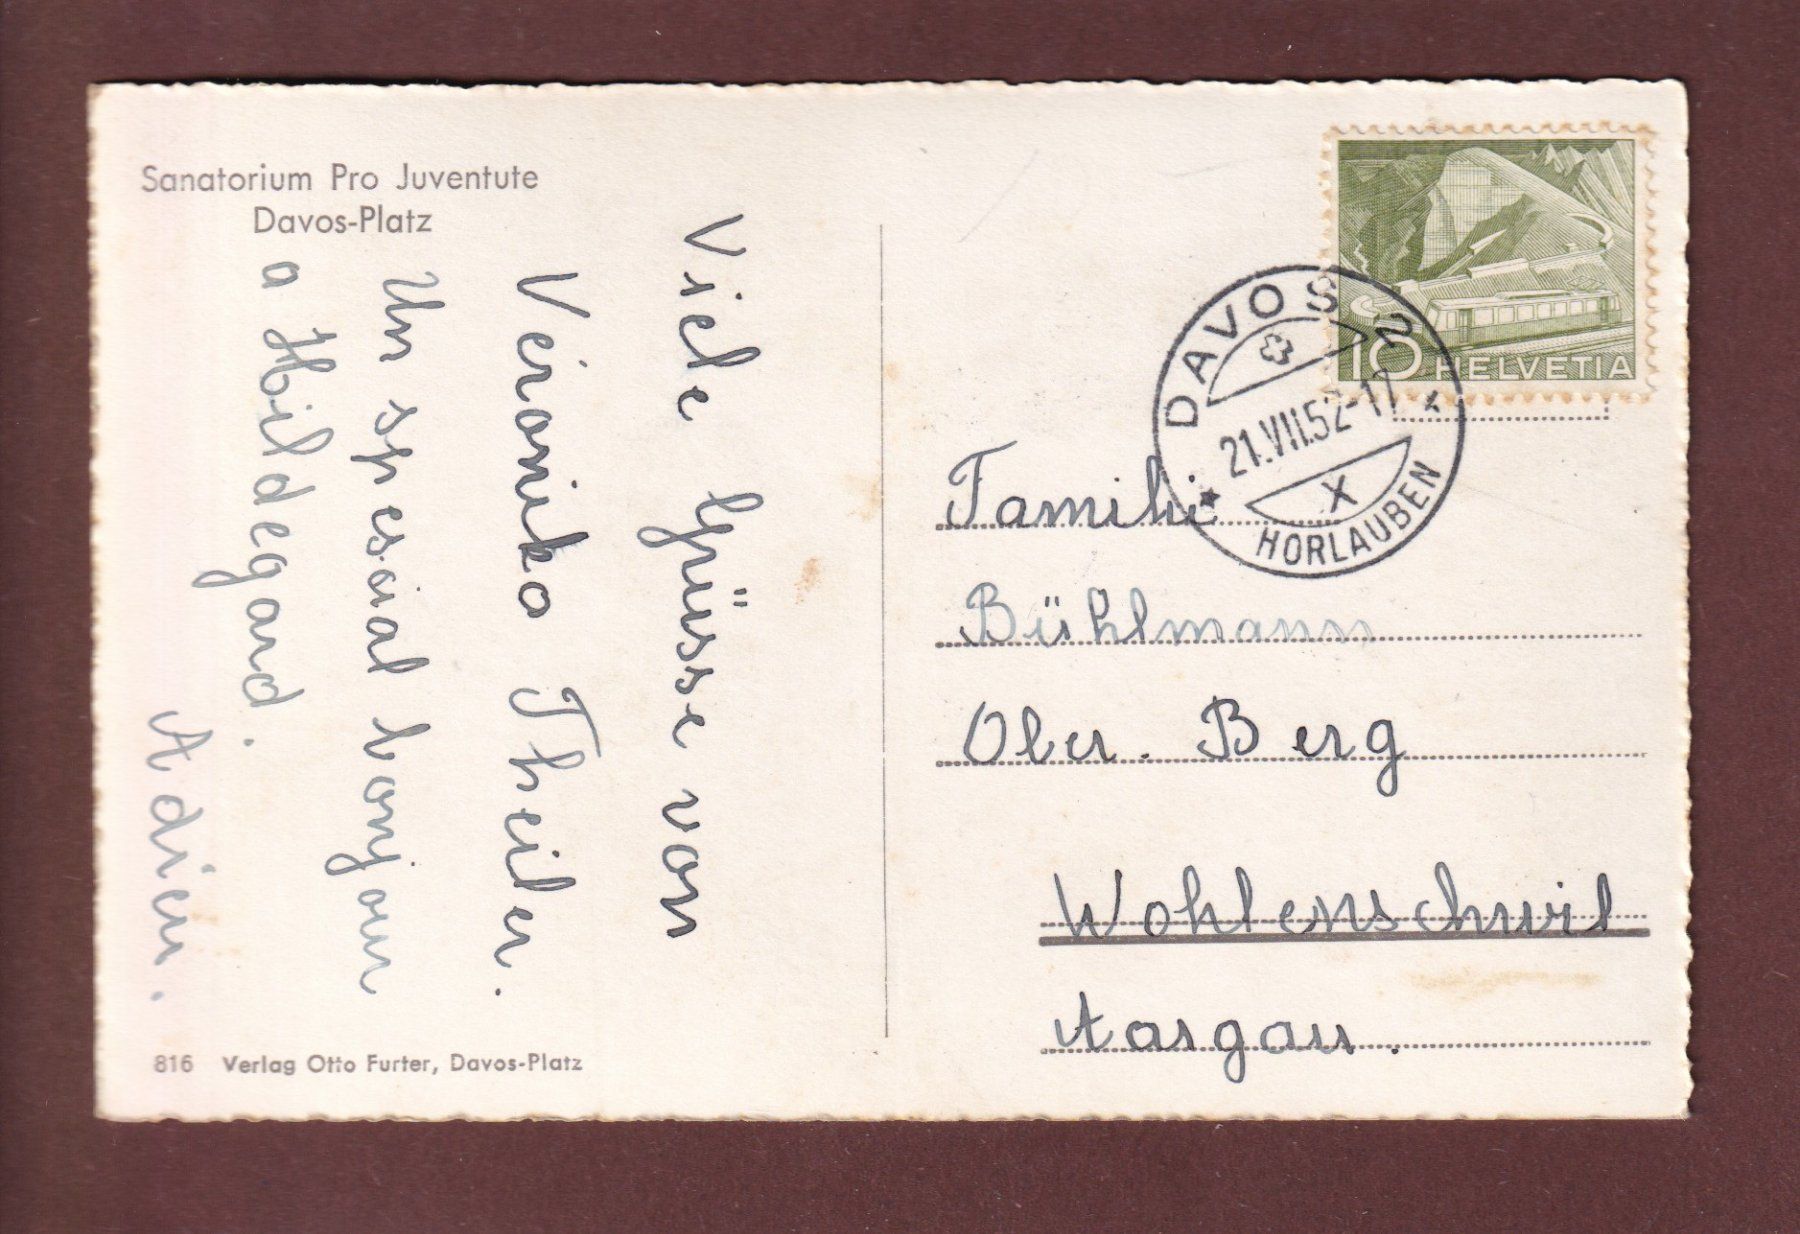 Sanatorium Pro Juventute
Davos-Platz
Viele Grüsse von
Veronika Theiler.
Un spesial bonjour
a Hildegard.
Adieu.
816 Verlag Otto Furter, Davos-Platz
10 HELVETIA
DAVOS 2
21.VII.52-17
X
HORLAUBEN
Famili
Bühlmann
Ober. Berg
Wohlenschwil
Aargau.